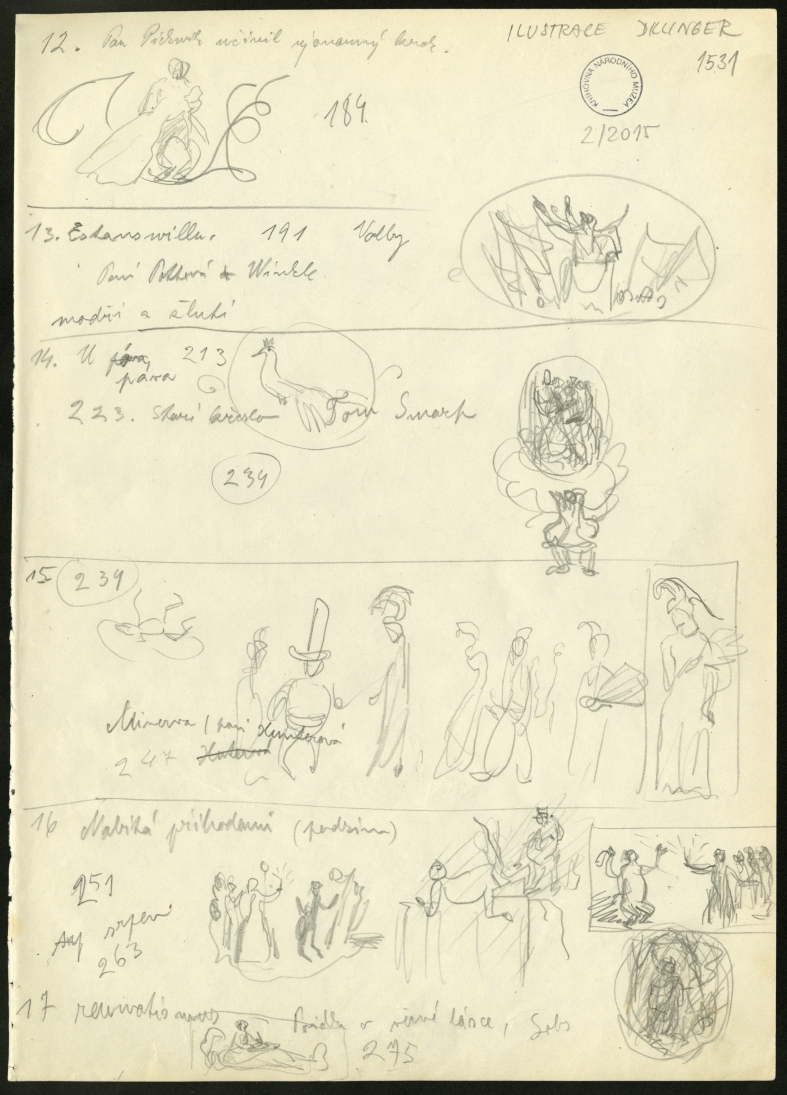 ILUSTRACE DILLINGER
1531
KNIHOVNA NÁRODNÍHO MUZEA
2/2015
12. Pan Pickwick učinil významný krok.
184.
13. Eatanswill. 191 Volby
Paní Pottová Winkle
modří a žlutí
14. U páva 213
páva
223. Staré křeslo Tom Smart
234
15 239
Minerva / paní Hunterová
247
16 Nabitá příhodami (podzim)
251
srpen
263
17 revmatismus Povídka o věrné lásce,
275